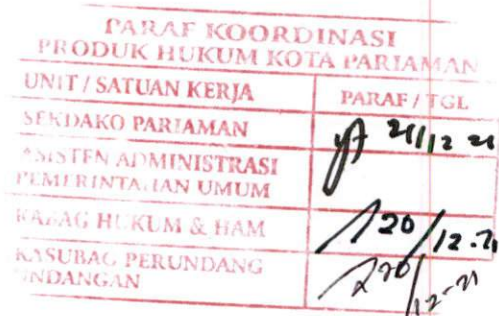 PARAF KOORDINASI
PRODUK HUKUM KOTA PARIAMAN
UNIT / SATUAN KERJA PARAF / TGL
SEKDAKO PARIAMAN 21/12 21
ASISTEN ADMINISTRASI
PEMERINTAHAN UMUM
KABAG HUKUM & HAM 20/12-21
KASUBAG PERUNDANG
UNDANGAN 20/12-21